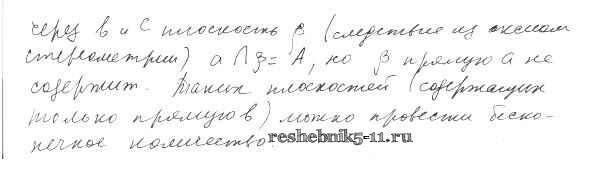 через b и C плоскость β (следствие из аксиом
стереометрии) a ∩ β = A, но β прямую a не
содержит. Таких плоскостей (содержащих
только прямую b) можно провести беско-
нечное количество
reshebnik5-11.ru